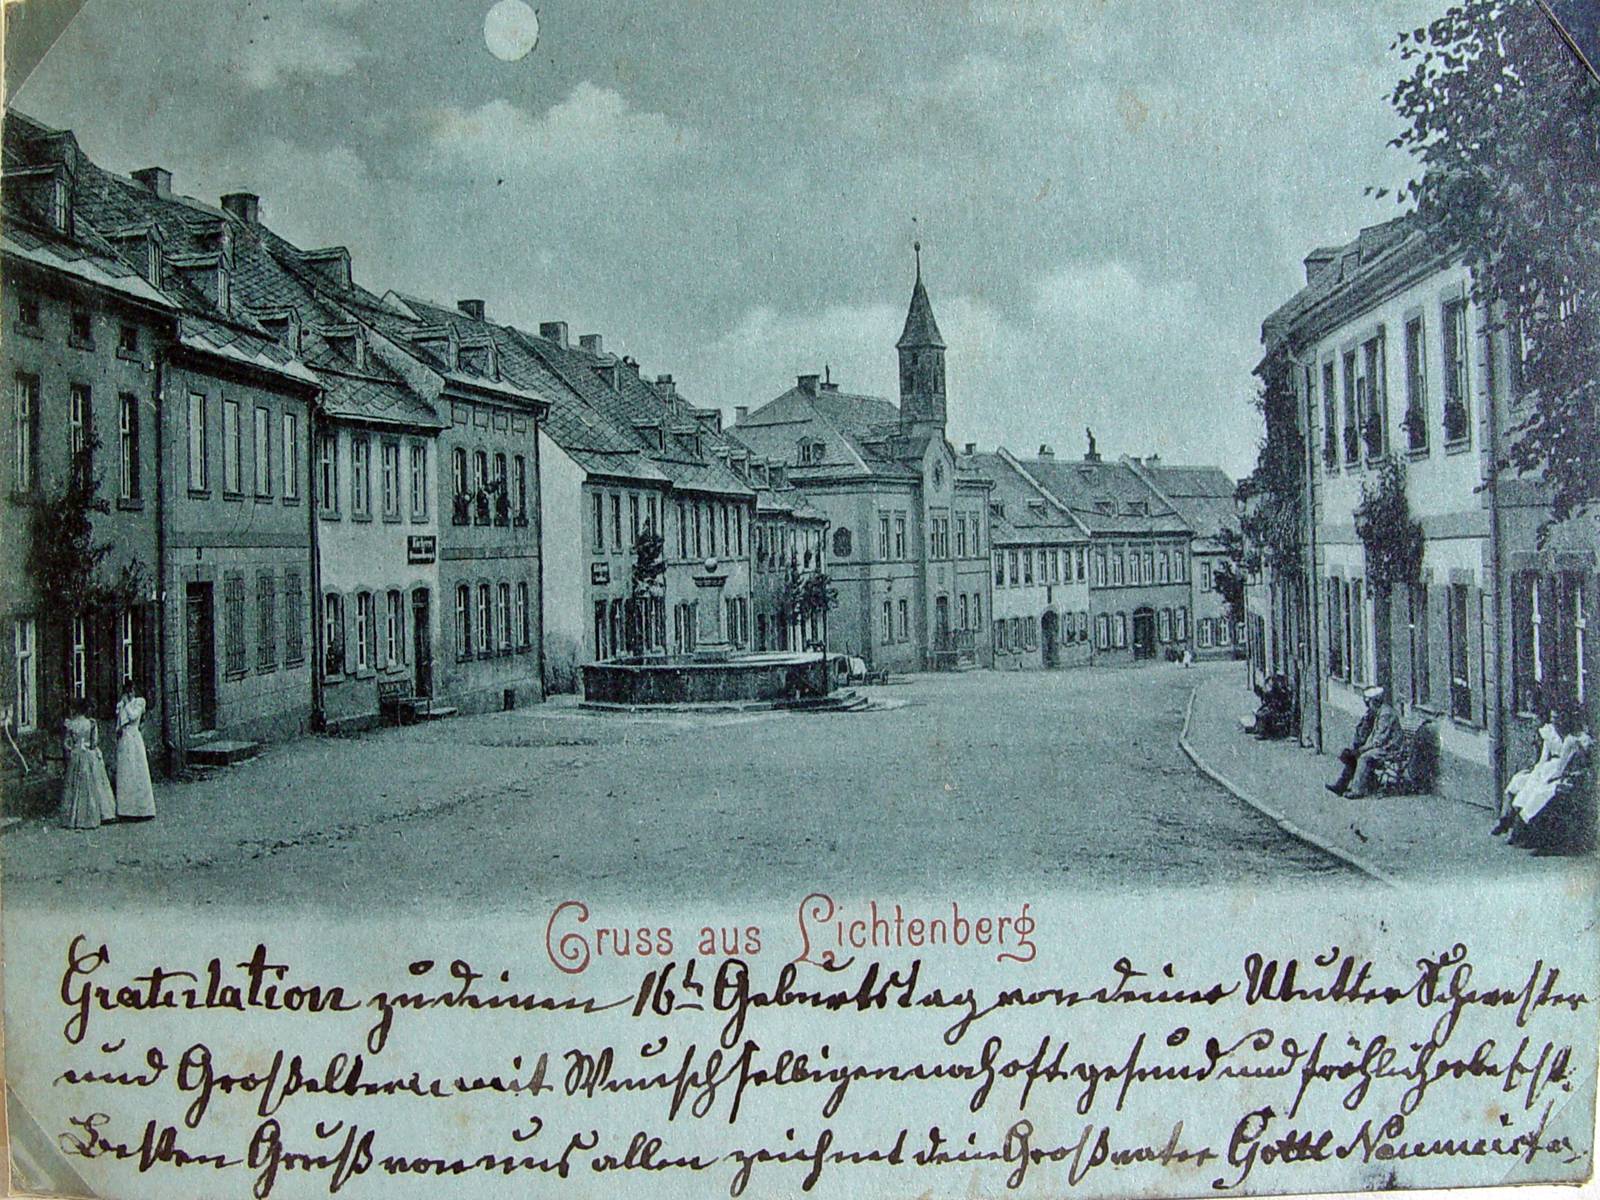 Gruss aus Lichtenberg
Gratulation zu deinen 16th Geburtstag von deiner Mutter Schwester
und Großeltern mit Wunsch selbigen noch oft gesund und fröhlich
Besten Gruß von uns allen zeichnet dein Großvater Gottl Neumeister